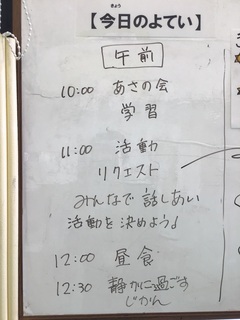 【今日のよてい】
きょう
午前
10:00 あさの会
学習
11:00 活動
リクエスト
みんなで 話しあい
活動を決めよう♪
12:00 昼食
12:30 静かに過ごす
じかん